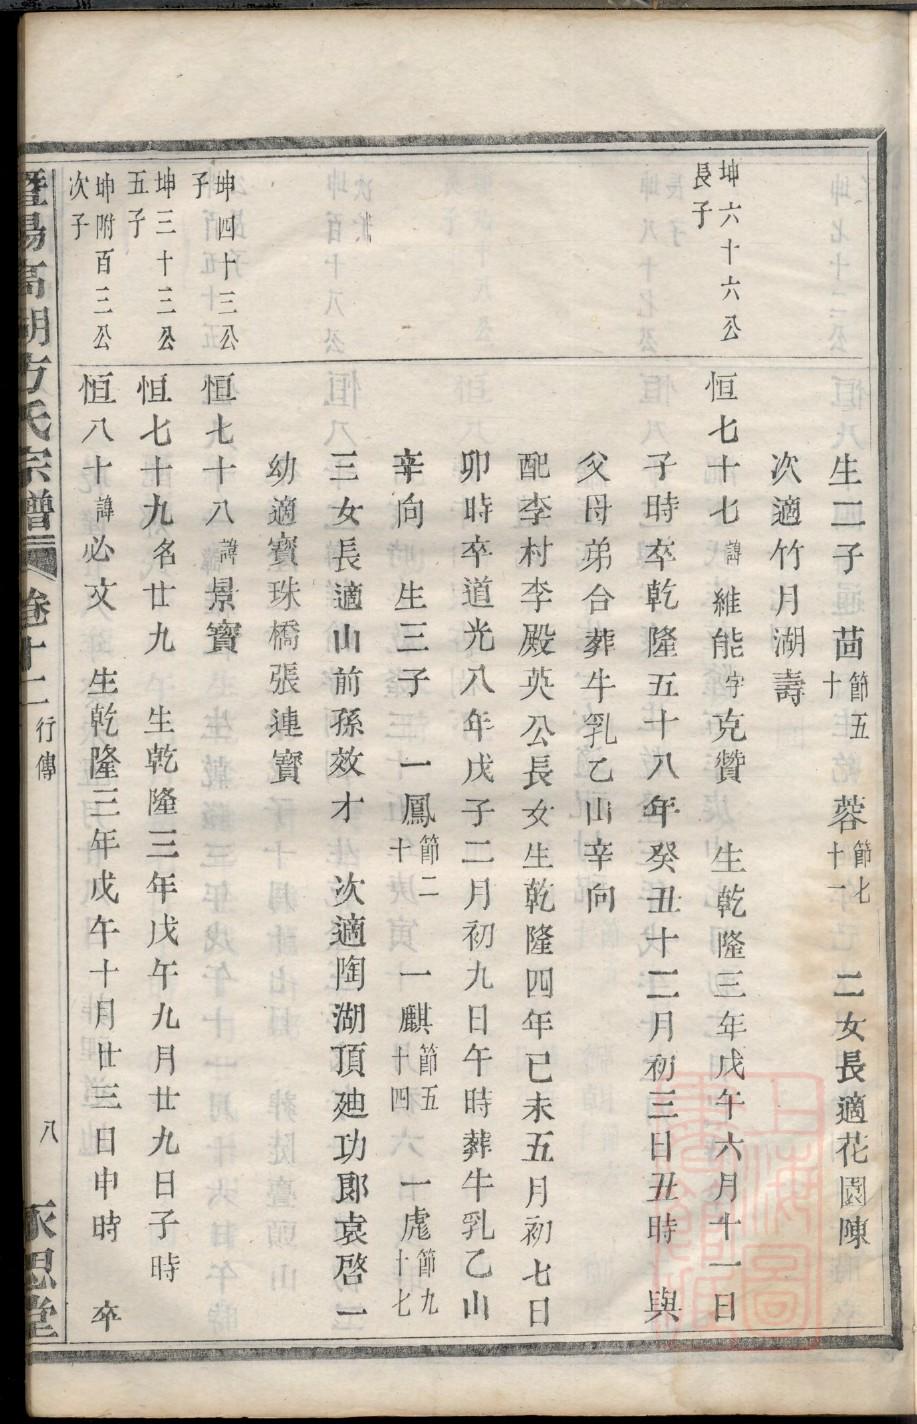 生二子 茴節五十 蓉節七十一 二女長適花園陳
次適竹月湖壽
坤六十六公長子
恒七十七諱維能字克贊 生乾隆三年戊午六月十一日
子時卒乾隆五十八年癸丑十二月初三日丑時 與
父母弟合葬牛乳乙山辛向
配李村李殿英公長女生乾隆四年已未五月初七日
卯時卒道光八年戊子二月初九日午時葬牛乳乙山
辛向 生三子 一鳳節二十 一麒節五十四 一虎節九十七
三女長適山前孫效才 次適陶湖頂廸功郎袁啓一
幼適寶珠橋張連寶
坤四十三公子
恒七十八諱景寶
坤三十三公五子
恒七十九名廿九 生乾隆三年戊午九月廿九日子時
坤附百三公次子
恒八十諱必文 生乾隆三年戊午十月廿三日申時 卒
暨陽高湖方氏宗譜 卷十二 行傳 八 永思堂